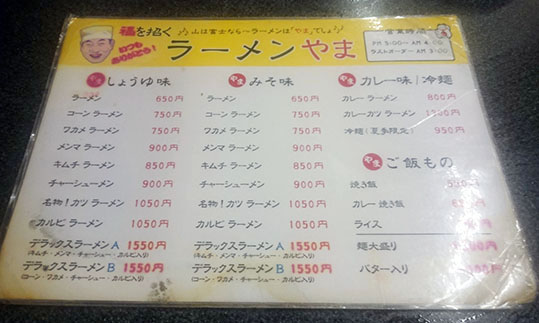 福を招く
山は富士なら〜ラーメンは「やま」でしょ
いつも
ありがとう!
ラーメンやま
営業時間
PM 5:00〜AM 4:00
ラストオーダー AM 3:00
やま しょうゆ味
ラーメン 650円
コーンラーメン 750円
ワカメラーメン 750円
メンマラーメン 900円
キムチラーメン 850円
チャーシューメン 900円
名物!カツラーメン 1050円
カルビラーメン 1050円
デラックスラーメンA 1550円
(キムチ・メンマ・チャーシュー・カルビ入り)
デラックスラーメンB 1550円
(コーン・ワカメ・チャーシュー・カルビ入り)
やま みそ味
ラーメン 650円
コーンラーメン 750円
ワカメラーメン 750円
メンマラーメン 900円
キムチラーメン 850円
チャーシューメン 900円
名物!カツラーメン 1050円
カルビラーメン 1050円
デラックスラーメンA 1550円
(キムチ・メンマ・チャーシュー・カルビ入り)
デラックスラーメンB 1550円
(コーン・ワカメ・チャーシュー・カルビ入り)
やま カレー味/冷麺
カレーラーメン 800円
カレーカツラーメン
冷麺(夏季限定) 950円
やま ご飯もの
焼き飯
カレー焼き飯
ライス
麺大盛り
バター入り